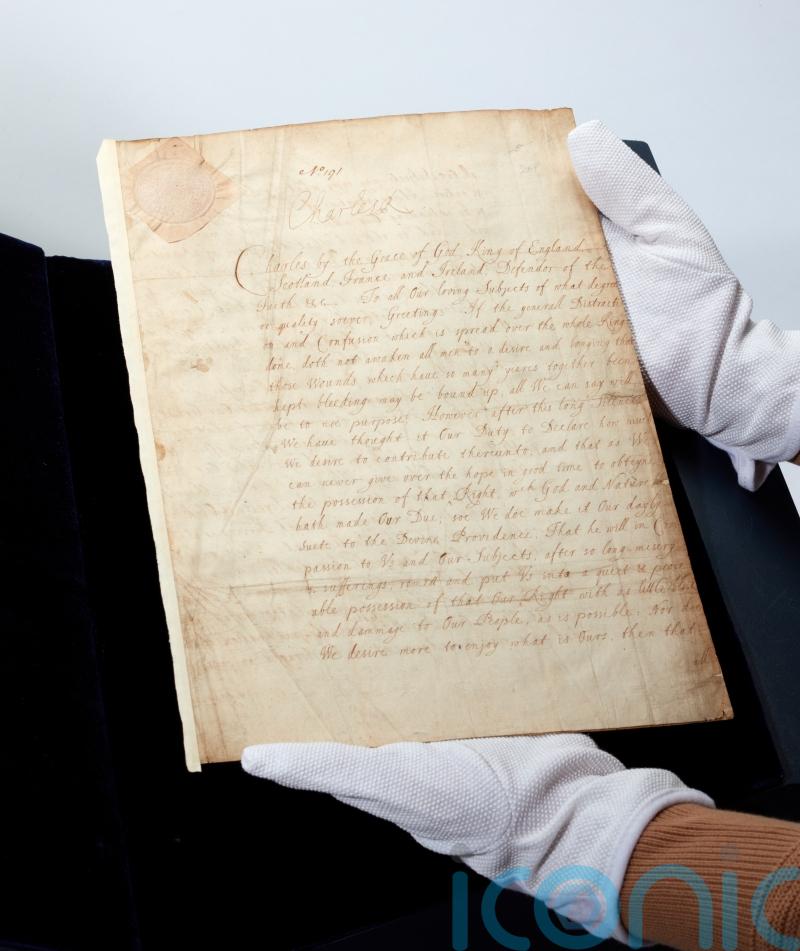 No 191
Charles R
Charles by the Grace of God King of England
Scotland, France and Ireland, Defendor of the
Faith &c. To all Our loving Subjects of what degree
or quality soever, Greeting. If the general Distracti
on and Confusion which is spread over the whole King
dome, doth not awaken all men to a desire and longing that
those Wounds which have so many yeares together been
kept bleeding may be bound up, all We can say will
be to noe purpose: However after this long Silence
We have thought it Our Duty to Declare how much
We desire to contribute thereunto, and that as We
can never give over the hope in good time to obteyne
the possession of that Right, wch God and Nature
hath made Our Due; soe We doe make it Our dayly
Suite to the Devine Providence, That he will in Com
passion to Us and Our Subjects, after so long misery
& sufferings, remitt and put Us into a quiet & peace
able possession of that Our Right with as little
and dammage to Our People, as is possible. Nor doe
We desire more to enjoy what is Ours, then that
all
iconic